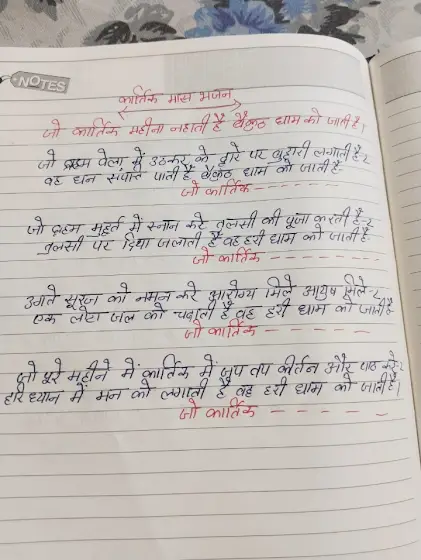 NOTES
कार्तिक मास भजन
जो कार्तिक महीना नहाती है वैकुंठ धाम को जाती है।
जो ब्रहम वेला में उठकर के द्वारे पर बुहारी लगाती है-२
वह धन संपति पाती है वैकुंठ धाम को जाती है-
जो कार्तिक - - - - - - - - -
जो ब्रहम मुहूर्त में स्नान करे तुलसी की पूजा करती है-२
तुलसी पर दिया जलाती है वह हरी धाम को जाती है-
जो कार्तिक - - - - - - - - -
उगते सूरज को नमन करे आरोग्य मिले आयुष मिले-२
एक लोटा जल को चढ़ाती है वह हरी धाम को जाती है-
जो कार्तिक - - - - - - - - -
जो पूरे महीने में कार्तिक में जप तप कीर्तन और पाठ करे-२
हरि ध्यान में मन को लगाती है वह हरी धाम को जाती है।
जो कार्तिक - - - - - -